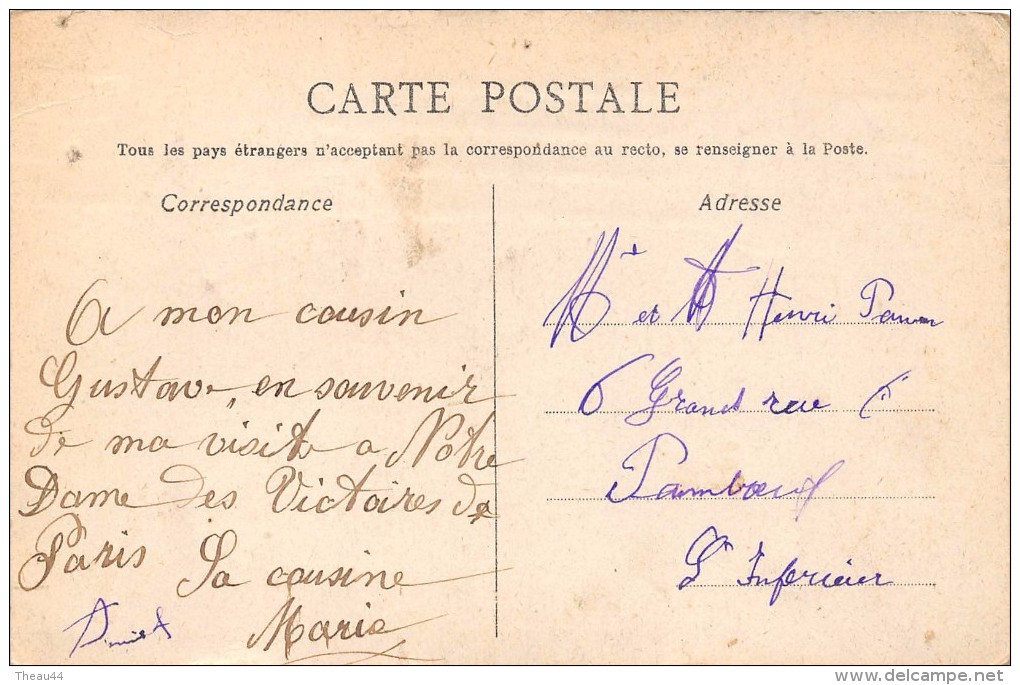 CARTE POSTALE
Tous les pays étrangers n'acceptant pas la correspondance au recto, se renseigner à la Poste.
Correspondance
A mon cousin
Gustave, en souvenir
de ma visite a Notre
Dame des Victoires de
Paris Sa cousine
Marie
Adresse
et Henri
6 Grand rue 6
Paimboeuf
Lre Inferieur
Theau44
delcampe.net